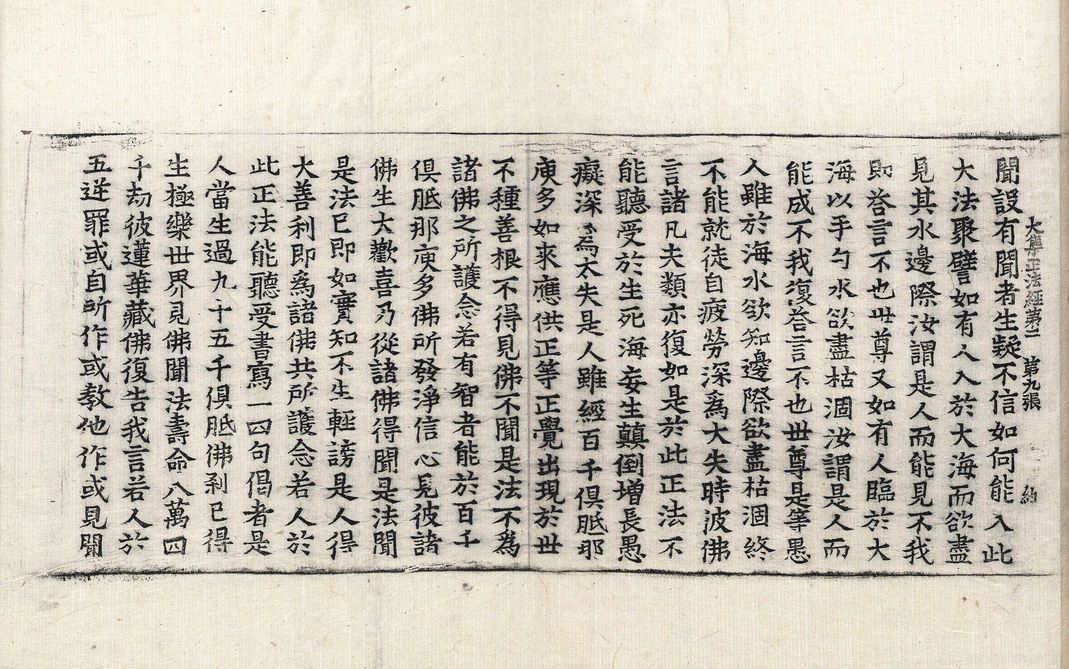 大集正法經第二 第九張 約
聞設有聞者生疑不信如何能入此
大法聚譬如有人入於大海而欲盡
見其水邊際汝謂是人而能見不我
即荅言不也世尊又如有人臨於大
海以手勺水欲盡枯涸汝謂是人而
能成不我復荅言不也世尊是等愚
人雖於海水欲知邊際欲盡枯涸終
不能就徒自疲勞深爲大失時波佛
言諸凡夫類亦復如是於此正法不
能聽受於生死海妄生顛倒增長愚
癡深爲太失是人雖經百千俱胝那
庾多如來應供正等正覺出現於世
不種善根不得見佛不聞是法不爲
諸佛之所護念若有智者能於百千
俱胝那庾多佛所發淨信心見彼諸
佛生大歡喜乃從諸佛得聞是法聞
是法已即如實知不生輕謗是人得
大善利即爲諸佛共所護念若人於
此正法能聽受書寫一四句偈者是
人當生過九十五千俱胝佛剎已得
生極樂世界見佛聞法壽命八萬四
千劫彼蓮華藏佛復告我言若人於
五逆罪或自所作或教他作或見聞